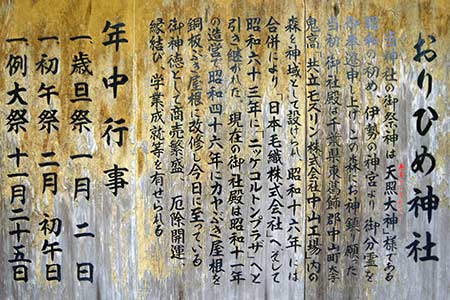 おりひめ神社
当神社の御祭神は「天照大神」様である
昭和の初め、伊勢の神宮より御分霊を
御奉遷申し上げ、この森にお神鎮り願った
当初御社殿は千葉県東葛飾郡中山町大字
鬼高、共立モスリン株式会社中山工場内の
森を神域として設けられ、昭和十六年には
合併により、日本毛織株式会社へ、そして
昭和六十三年に「ニッケコルトンプラザ」へと
引き継がれた。現在の御社殿は昭和十一年
の造営で昭和四十六年にカヤぶき屋根を
銅板ぶき屋根に改修し今日に至っている
御神徳として商売繁盛、厄除開運、
縁結び、学業成就等を有せられる
年中行事
一、歳旦祭 一月一日
一、初午祭 二月初午日
一、例大祭 十一月二十五日